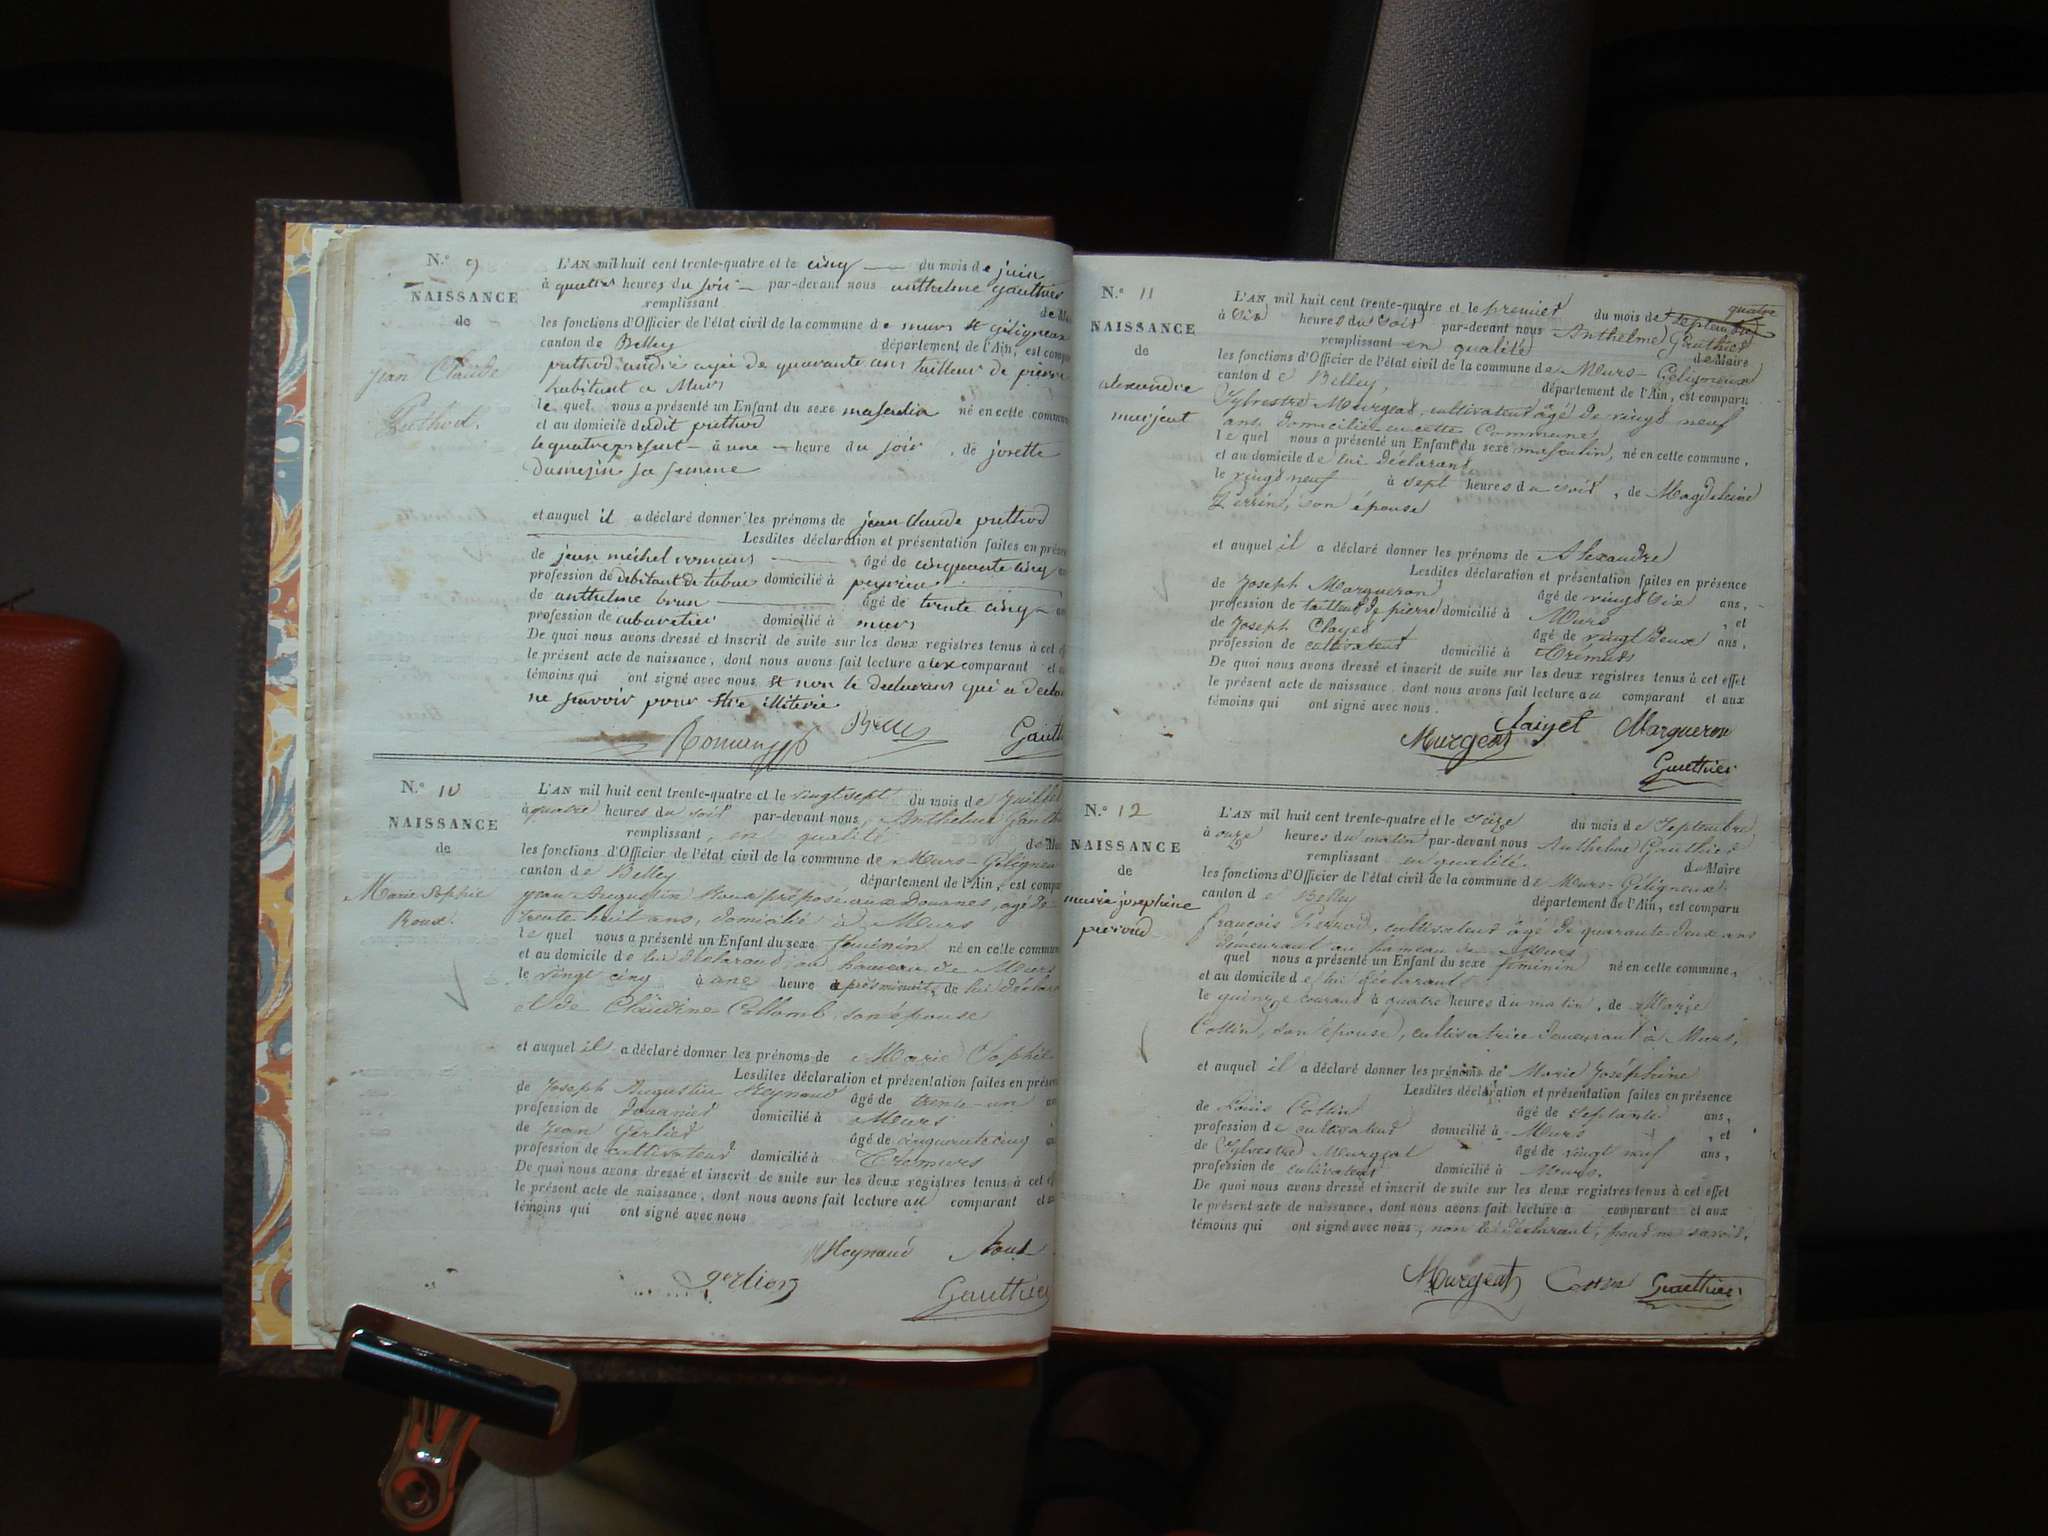 N.º 9
NAISSANCE
de
Jean Claude
Puthod.
L'AN mil huit cent trente-quatre et le cinq du mois de juin
à quatre heures du soir par-devant nous anthelme gauthier
remplissant de Mai
les fonctions d'Officier de l'état civil de la commune de murs et géligneux
canton de Belley département de l'Ain, est compa
puthod andré agé de quarante ans tailleur de pierre
habitant a Murs
le quel nous a présenté un Enfant du sexe masculin né en cette commune
et au domicile dudit puthod
le quatre présent à une heure du soir, de josette
Dumezin sa femme
et auquel il a déclaré donner les prénoms de jean Claude puthod
Lesdites déclaration et présentation faites en prése
de jean michel romans âgé de cinquante cinq
profession de débitant de tabac domicilié à peyrieu
de anthelme brun âgé de trente cinq
profession de cabaretier domicilié à murs
De quoi nous avons dressé et inscrit de suite sur les deux registres tenus à cet ef
le présent acte de naissance, dont nous avons fait lecture a ux comparant et a
témoins qui ont signé avec nous et non le declarant qui a declaré
ne savoir pour être illiteré
Romans Gauth
N.º 10
NAISSANCE
de
Marie Sophie
Roux.
L'AN mil huit cent trente-quatre et le vingt sept du mois de Juillet
à quatre heures du soir par-devant nous Anthelme Gauth
remplissant en qualité de Mai
les fonctions d'Officier de l'état civil de la commune de Murs-Géligneu
canton de Belley département de l'Ain, est compa
Jean Augustin Roux préposé aux Douanes, agé de
trente huit ans, domicilié à Murs
le quel nous a présenté un Enfant du sexe féminin né en cette commun
et au domicile de lui déclarant au hameau de Murs
le vingt cinq à une heure après minuit, de lui déclara
et de Claudine Collomb son épouse
et auquel il a déclaré donner les prénoms de Marie Sophie
Lesdites déclaration et présentation faites en présen
de Joseph Augustin Reynaud âgé de trente-un an
profession de Douanier domicilié à Murs
de Jean Gerlier âgé de cinquante cinq
profession de cultivateur domicilié à Crémurs
De quoi nous avons dressé et inscrit de suite sur les deux registres tenus à cet ef
le présent acte de naissance, dont nous avons fait lecture au comparant et au
témoins qui ont signé avec nous
Reynaud Roux
Gauthier
N.º 11
NAISSANCE
de
alexandre
murjeat
L'AN mil huit cent trente-quatre et le premier du mois de septembre quatre
à six heures du soir par-devant nous Anthelme Gauthier
remplissant en qualité de Maire
les fonctions d'Officier de l'état civil de la commune de Murs-Géligneux
canton de Belley, département de l'Ain, est comparu
Sylvestre Murgeat, cultivateur âgé de vingt neuf
ans, domicilié en cette Commune
le quel nous a présenté un Enfant du sexe masculin, né en cette commune,
et au domicile de lui déclarant
le vingt neuf à sept heures du soir, de Magdeleine
Perrin, son épouse
et auquel il a déclaré donner les prénoms de Alexandre
Lesdites déclaration et présentation faites en présence
de Joseph Margueron âgé de vingt six ans,
profession de tailleur de pierre domicilié à Murs, et
de Joseph Clayet âgé de vingt deux ans,
profession de cultivateur domicilié à Crémurs
De quoi nous avons dressé et inscrit de suite sur les deux registres tenus à cet effet
le présent acte de naissance, dont nous avons fait lecture au comparant et aux
témoins qui ont signé avec nous.
Murgeat Claiyet Margueron
Gauthier
N.º 12
NAISSANCE
de
marie josephine
L'AN mil huit cent trente-quatre et le seize du mois de Septembre
à onze heures du matin par-devant nous Anthelme Gauthier
remplissant en qualité de Maire
les fonctions d'Officier de l'état civil de la commune de Murs-Géligneux
canton de Belley département de l'Ain, est comparu
françois Perrod, cultivateur âgé de quarante deux ans
demeurant au hameau de Murs
quel nous a présenté un Enfant du sexe féminin né en cette commune,
et au domicile de lui déclarant
le quinze courant à quatre heures du matin, de Marie
Cottin, son épouse, cultivatrice demeurant à Murs,
et auquel il a déclaré donner les prénoms de Marie Joséphine
Lesdites déclaration et présentation faites en présence
de Louis Cottin âgé de septante ans,
profession de cultivateur domicilié à Murs, et
de Sylvestre Murgeat âgé de vingt neuf ans,
profession de cultivateur domicilié à Murs.
De quoi nous avons dressé et inscrit de suite sur les deux registres tenus à cet effet
le présent acte de naissance, dont nous avons fait lecture à comparant et aux
témoins qui ont signé avec nous, non le déclarant, pour ne savoir.
Murgeat Cottin Gauthier